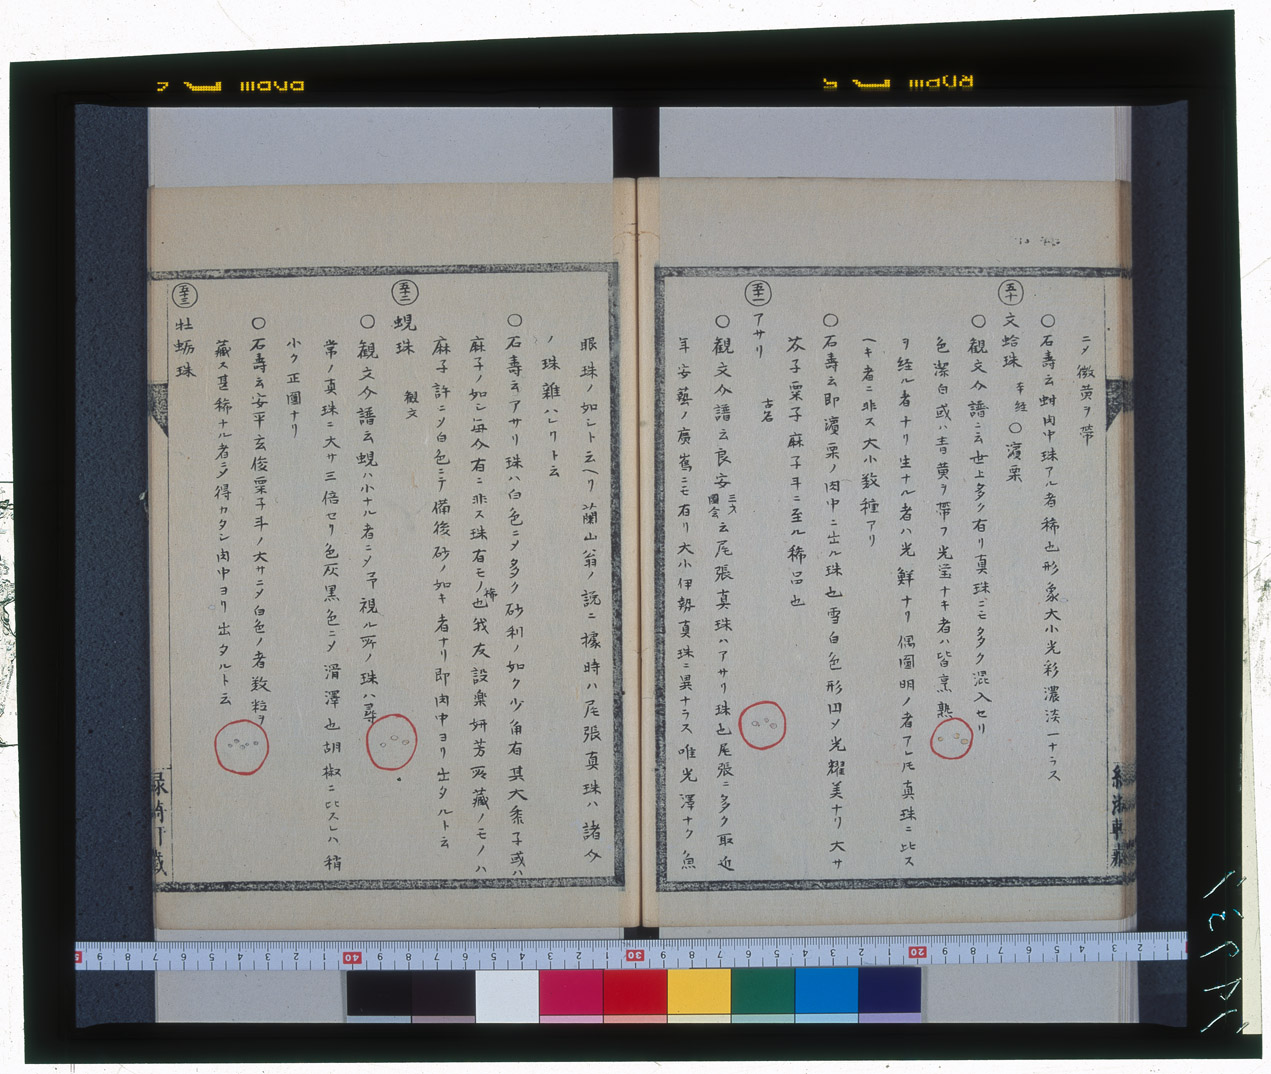 ニメ微黄ヲ帶
○石壽云蚶肉中珠アル者稀也形象大小光彩濃淡一ナラス
五十 文蛤珠 ○濱栗
○観文介譜ニ云世上多ク有リ真珠ニモ多ク混入セリ
色潔白或ハ青黄ヲ帶フ光瑩ナキ者ハ皆烹熟
ヲ経ル者ナリ生ナル者ハ光鮮ナリ偶圓明ノ者アレ𪜈真珠ニ比ス
ヘキ者ニ非ス大小数種アリ
○石壽云即濱栗ノ肉中ニ出ル珠也雪白色形円メ光耀美ナリ大サ
芥子粟子麻子斗ニ至ル稀品也
五十一 アサリ 古名
○観文介譜云良安三才圖会云尾張真珠ハアサリ珠也尾張ニ多ク取近
年安藝ノ廣嶌ニモ有リ大小伊勢真珠ニ異ナラス唯光澤ナク魚
眼珠ノ如シト云ヘリ蘭山翁ノ説ニ據時ハ尾張真珠ハ諸介
ノ珠雜ハレリト云
○石壽云アサリ珠ハ白色ニメ多ク砂利ノ如ク少角有其大黍子或ハ
麻子ノ如シ毎介有ニ非ス珠有モノ稀也我友設楽妍芳所藏ノモノハ
麻子許ニメ白色ニテ備後砂ノ如キ者ナリ即肉中ヨリ出タルト云
五十二 蜆珠 観文
○観文介譜云蜆ハ小ナル者ニメ予視ル所ノ珠ハ尋
常ノ真珠ニ大サ三倍セリ色灰黒色ニメ滑澤也胡椒ニ比スレハ稍
小ク正圓ナリ
○石壽云安平玄俊粟子斗ノ大サニメ白色ノ者数粒ヲ
藏ス甚稀ナル者ニメ得カタシ肉中ヨリ出タルト云
五十三 牡蛎珠